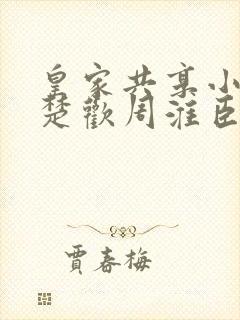 皇家共享小
楚歡周淮臣
賈春梅